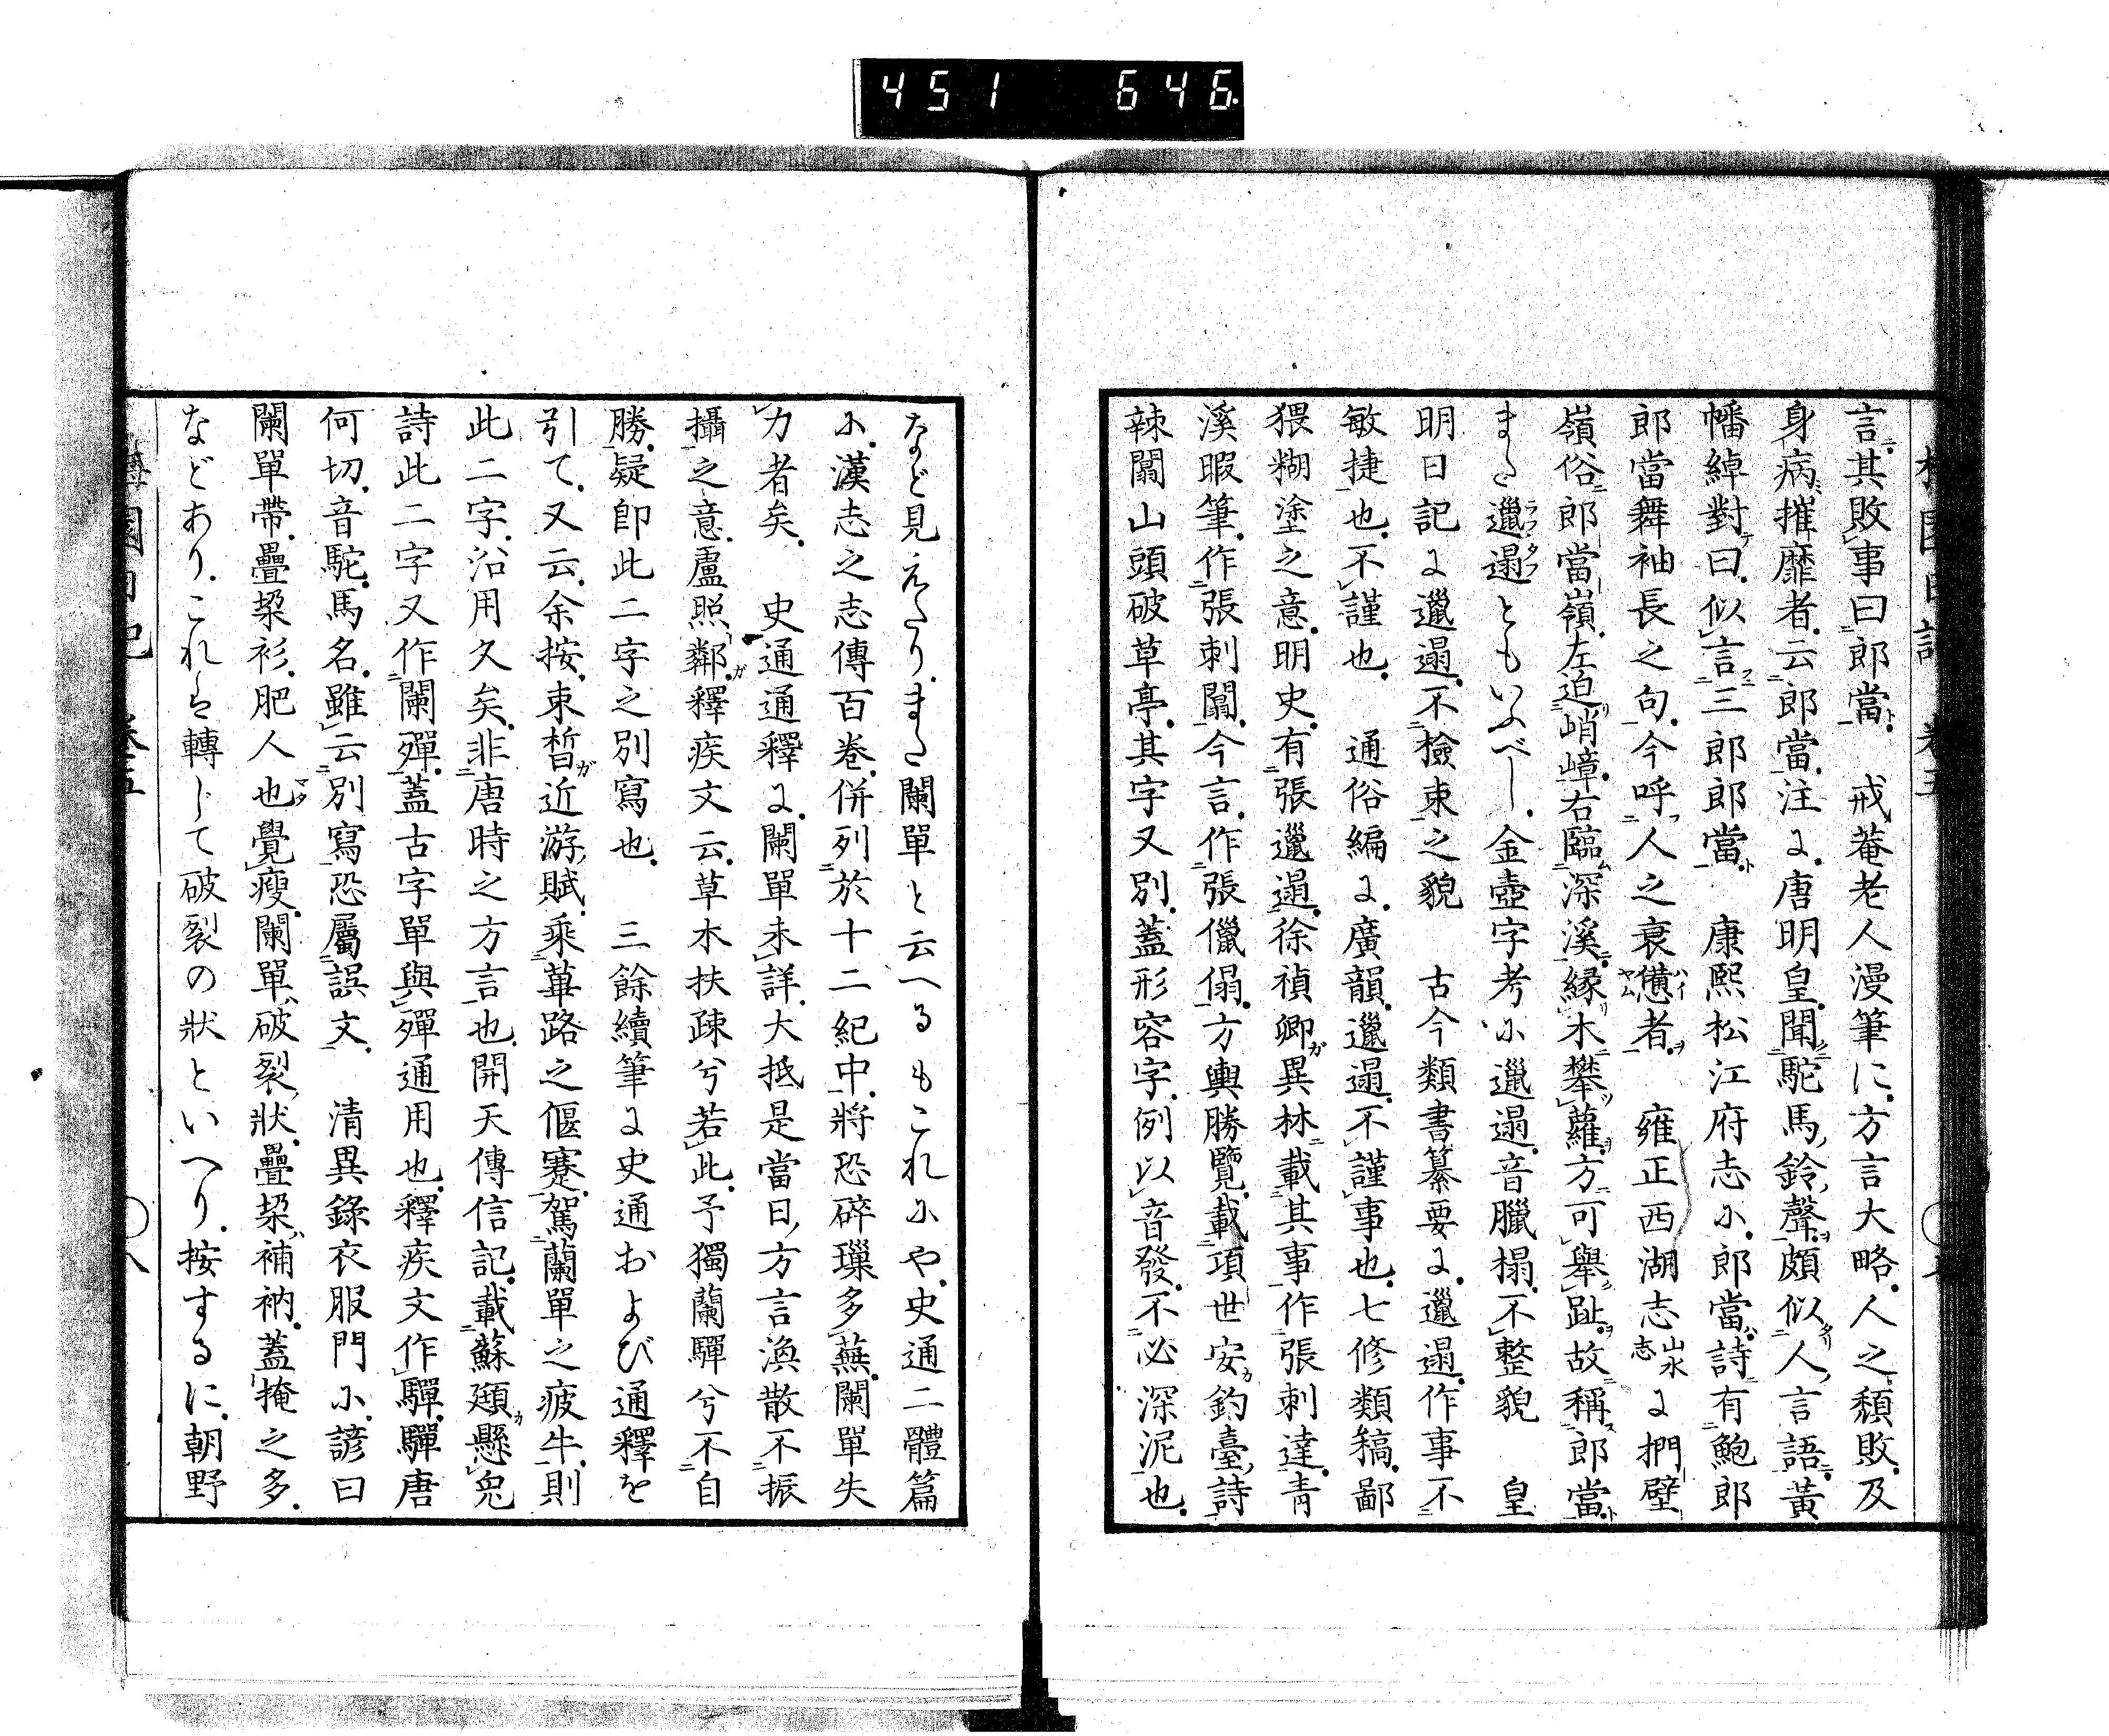 451 646
言其敗事曰郎當 戒菴老人漫筆に方言大略人之頽敗及
身病摧靡者云郎當注に唐明皇聞駝馬鈴聲頗似人言語黃
幡綽對曰似言三郎郎當 康熙松江府志に郎當詩有鮑郎
郎當舞袖長之句今呼人之衰憊者 雍正西湖志山水志に捫壁
嶺俗郎當嶺左迫峭嶂右臨深溪縁木攀蘿方可舉趾故稱郎當
また邋遢ともいふべし 金壺字考に邋遢音臘搨不整貌 皇
明日記に邋遢不檢束之貌 古今類書纂要に邋遢作事不
敏捷也不謹也 通俗編に廣韻邋遢不謹事也七修類稿鄙
猥糊塗之意明史有張邋遢徐禎卿異林載其事作張刺達青
溪暇筆作張刺闒今言作張儠傝方輿勝覽載項世安釣臺詩
辣闒山頭破草亭其字又別蓋形容字例以音發不必深泥也
など見えたりまた闌單と云へるもこれにや史通二體篇
に漢志之志傳百卷併列於十二紀中將恐碎璅多蕪闌單失
力者矣 史通通釋に闌單未詳大抵是當日方言渙散不振
攝之意盧照鄰釋疾文云草木扶疎兮若此予獨蘭驒兮不自
勝疑即此二字之別寫也 三餘續筆に史通および通釋を
引て又云余按束晳近游賦乘蓽路之偃蹇駕蘭單之疲牛則
此二字沿用久矣非唐時之方言也開天傳信記載蘇頲懸兔
詩此二字又作闌殫蓋古字單與殫通用也釋疾文作驒驒唐
何切音駝馬名雖云別寫恐屬誤文 清異錄衣服門に諺曰
闌單帶疊栔衫肥人也覺瘦闌單破裂狀疊栔補衲蓋掩之多
などありこれは轉じて破裂の狀といへり按するに朝野